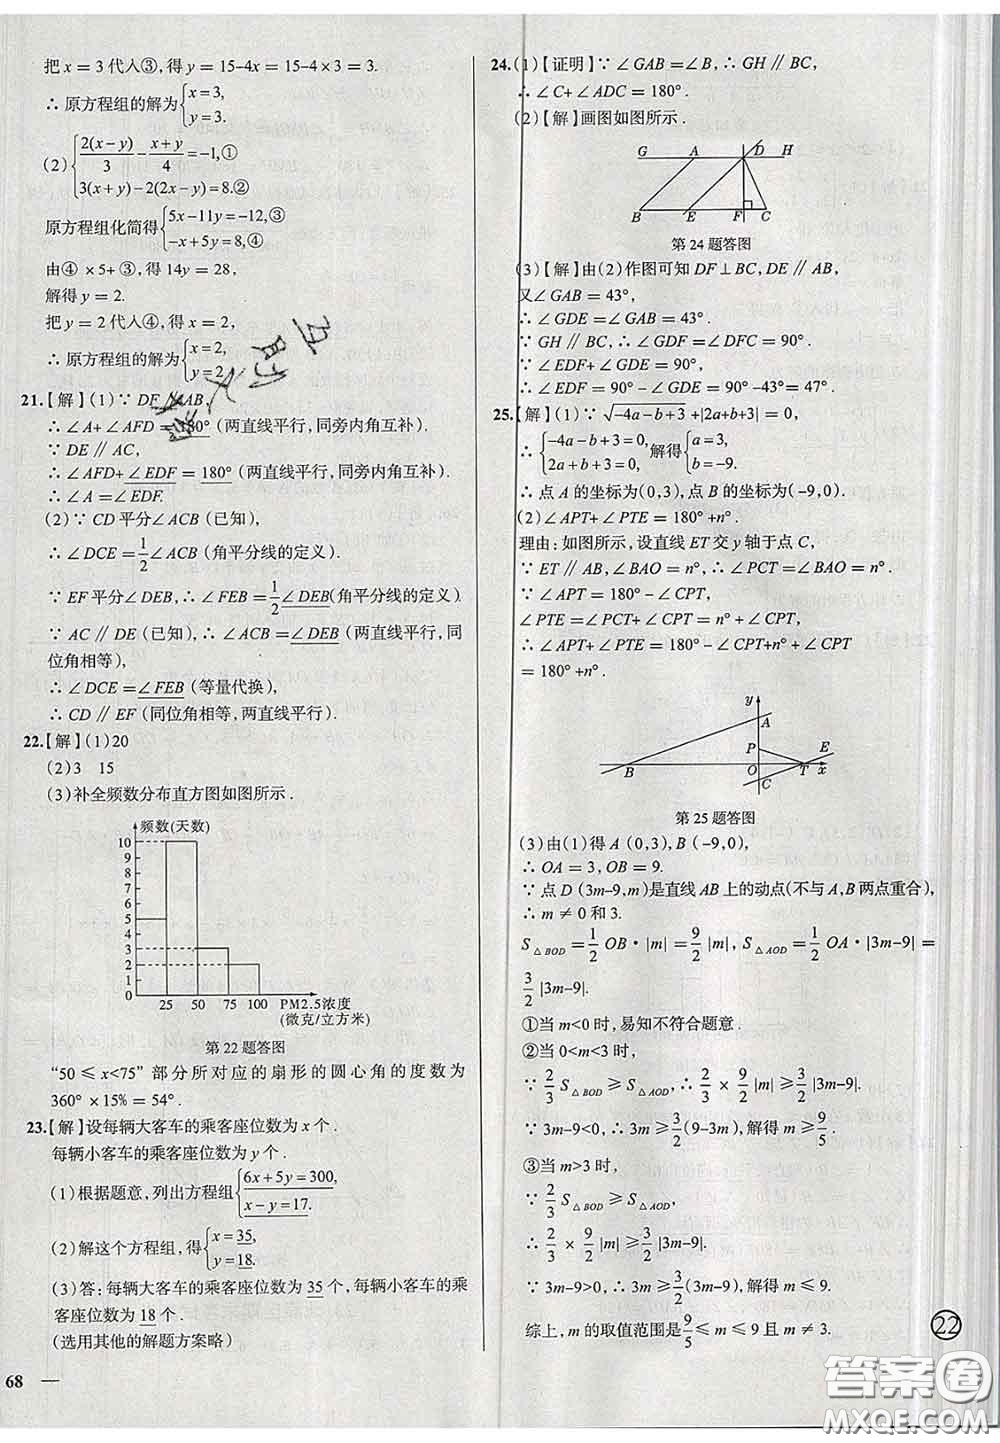 把x=3代入③,得y=15-4x=15-4×3=3.
∴原方程组的解为{x=3, y=3.
(2){2(x-y)/3-(x+y)/4=-1,① 3(x+y)-2(2x-y)=8.②
原方程组化简得{5x-11y=-12,③ -x+5y=8,④
由④×5+③,得14y=28,
解得y=2.
把y=2代入④,得x=2,
∴原方程组的解为{x=2, y=2.
21.【解】(1)∵DF∥AB,
∴∠A+∠AFD=180°(两直线平行,同旁内角互补).
∵DE∥AC,
∴∠AFD+∠EDF=180°(两直线平行,同旁内角互补).
∴∠A=∠EDF.
(2)∵CD平分∠ACB(已知),
∴∠DCE=1/2∠ACB(角平分线的定义).
∵EF平分∠DEB,∴∠FEB=1/2∠DEB(角平分线的定义).
∵AC∥DE(已知),∴∠ACB=∠DEB(两直线平行,同
位角相等),
∴∠DCE=∠FEB(等量代换),
∴CD∥EF(同位角相等,两直线平行).
22.【解】(1)20
(2)3 15
(3)补全频数分布直方图如图所示.
频数(天数)
10
9
8
7
6
5
4
3
2
1
0
25 50 75 100 PM2.5浓度
(微克/立方米)
第22题答图
“50≤x<75”部分所对应的扇形的圆心角的度数为
360°×15%=54°.
23.【解】设每辆大客车的乘客座位数为x个.
每辆小客车的乘客座位数为y个.
(1)根据题意,列出方程组{6x+5y=300, x-y=17.
(2)解这个方程组,得{x=35, y=18.
(3)答:每辆大客车的乘客座位数为35个,每辆小客车的乘
客座位数为18个.
(选用其他的解题方案略)
68
24.(1)【证明】∵∠GAB=∠B,∴GH∥BC,
∴∠C+∠ADC=180°.
(2)【解】画图如图所示.
G A D H
B E F C
第24题答图
(3)【解】由(2)作图可知DF⊥BC,DE∥AB,
又∠GAB=43°,
∴∠GDE=∠GAB=43°.
∵GH∥BC,∴∠GDF=∠DFC=90°.
∵∠EDF+∠GDE=90°,
∴∠EDF=90°-∠GDE=90°-43°=47°.
25.【解】(1)∵√(-4a-b+3)+|2a+b+3|=0,
∴{-4a-b+3=0, 2a+b+3=0,解得{a=3, b=-9.
∴点A的坐标为(0,3),点B的坐标为(-9,0).
(2)∠APT+∠PTE=180°+n°.
理由:如图所示,设直线ET交y轴于点C,
∵ET∥AB,∠BAO=n°,∴∠PCT=∠BAO=n°.
∵∠APT=180°-∠CPT,
∠PTE=∠PCT+∠CPT=n°+∠CPT,
∴∠APT+∠PTE=180°-∠CPT+n°+∠CPT
=180°+n°.
y
A
P E
B O T x
C
第25题答图
(3)由(1)得A(0,3),B(-9,0),
∴OA=3,OB=9.
∵点D(3m-9,m)是直线AB上的动点(不与A,B两点重合),
∴m≠0和3.
S△BOD=1/2OB·|m|=9/2|m|,S△AOD=1/2OA·|3m-9|=
3/2|3m-9|.
①当m<0时,易知不符合题意.
②当0<m<3时,
∵2/3S△BOD≥S△AOD,∴2/3×9/2|m|≥3/2|3m-9|.
∵3m-9<0,∴3m≥3/2(9-3m),解得m≥9/5.
③当m>3时,
∵2/3S△BOD≥S△AOD,
∴2/3×9/2|m|≥3/2|3m-9|.
∵3m-9>0,∴3m≥3/2(3m-9),解得m≤9.
综上,m的取值范围是9/5≤m≤9且m≠3.
22
答案圈
MXQE.COM